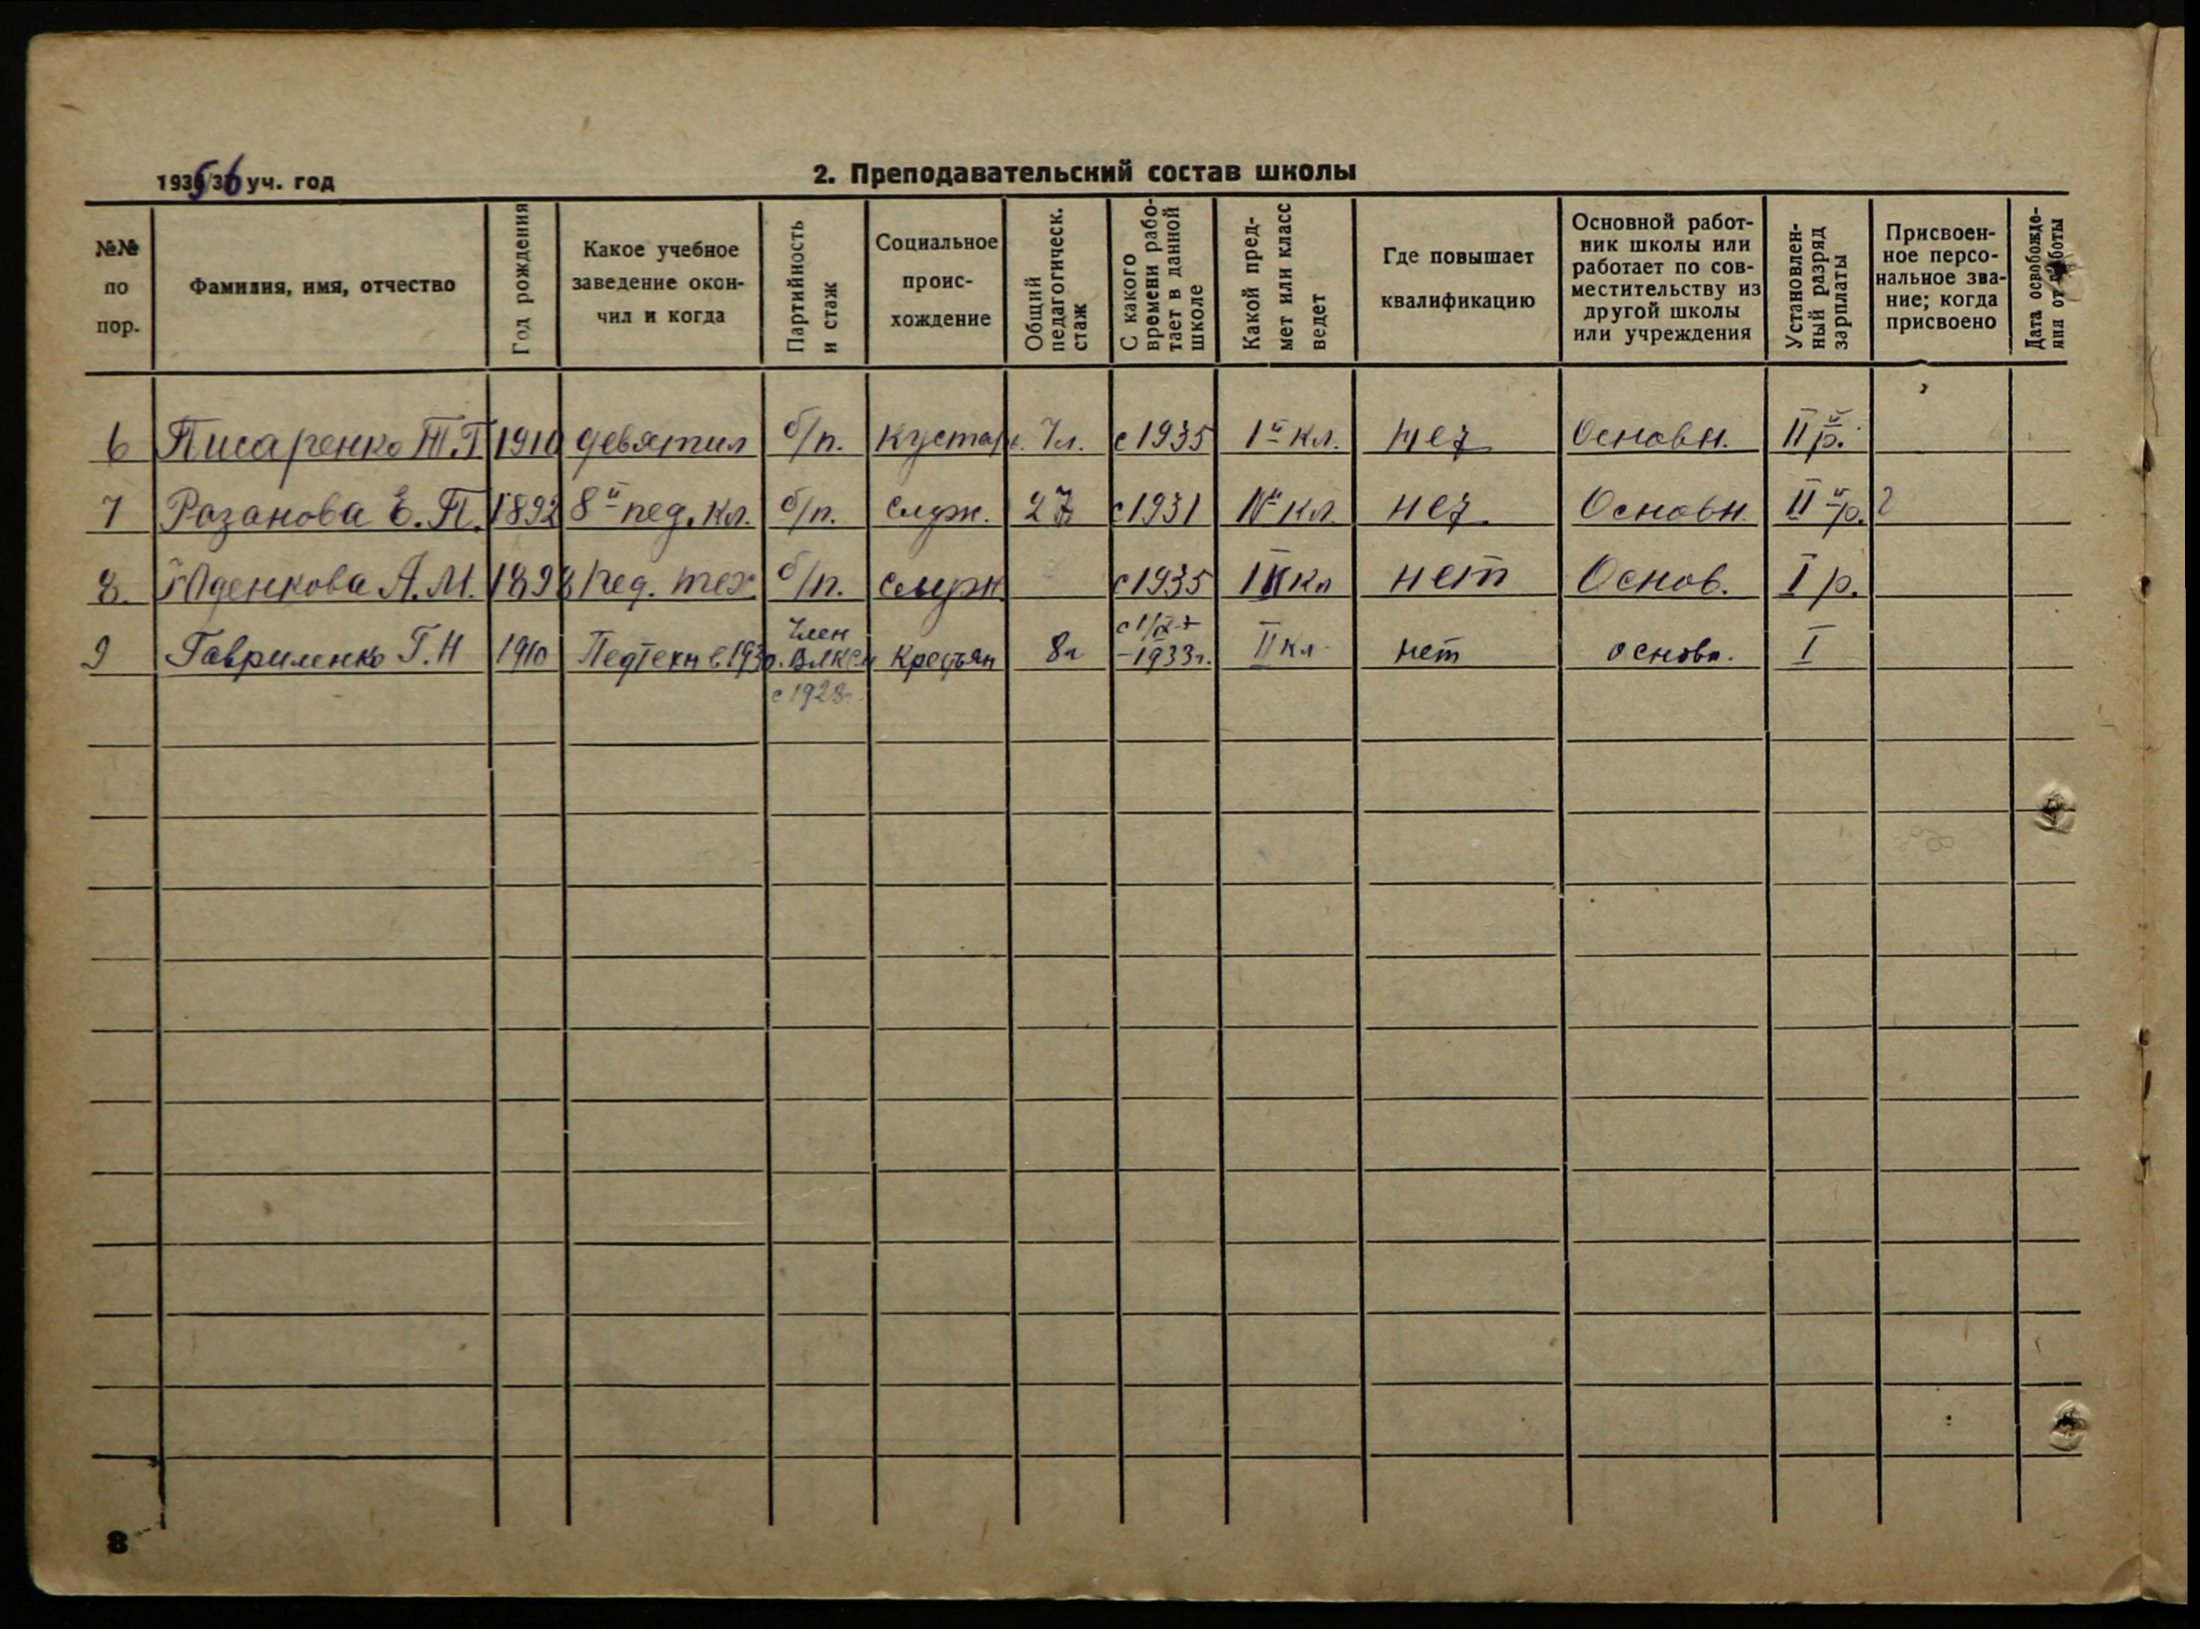 1935/36 уч. год
2. Преподавательский состав школы
№№ по пор.
Фамилия, имя, отчество
Год рождения
Какое учебное заведение окончил и когда
Партийность и стаж
Социальное происхождение
Общий педагогическ. стаж
С какого времени работает в данной школе
Какой предмет или класс ведет
Где повышает квалификацию
Основной работник школы или работает по совместительству из другой школы или учреждения
Установленный разряд зарплаты
Присвоенное персональное звание; когда присвоено
Дата освобождения от работы
6 Писаренко Т.Г. 1910 девятил б/п. кустарь. 7л. с 1935 Iй кл. нет Основн. IIй р.
7 Розанова Е.П. 1892 8й пед. кл. б/п. служ. 27 с 1931 IVй кл. нет Основн. IIй р.
8. Юденкова А.М. 1898 Пед. тех. б/п. служ. с 1935 кл нет Основ. I р.
9 Гавриленко Г.Н 1910 Педтехн в 1930. Член ВЛКСМ с 1928г. Крестьян 8л 1933г. II кл. нет основн. I
8